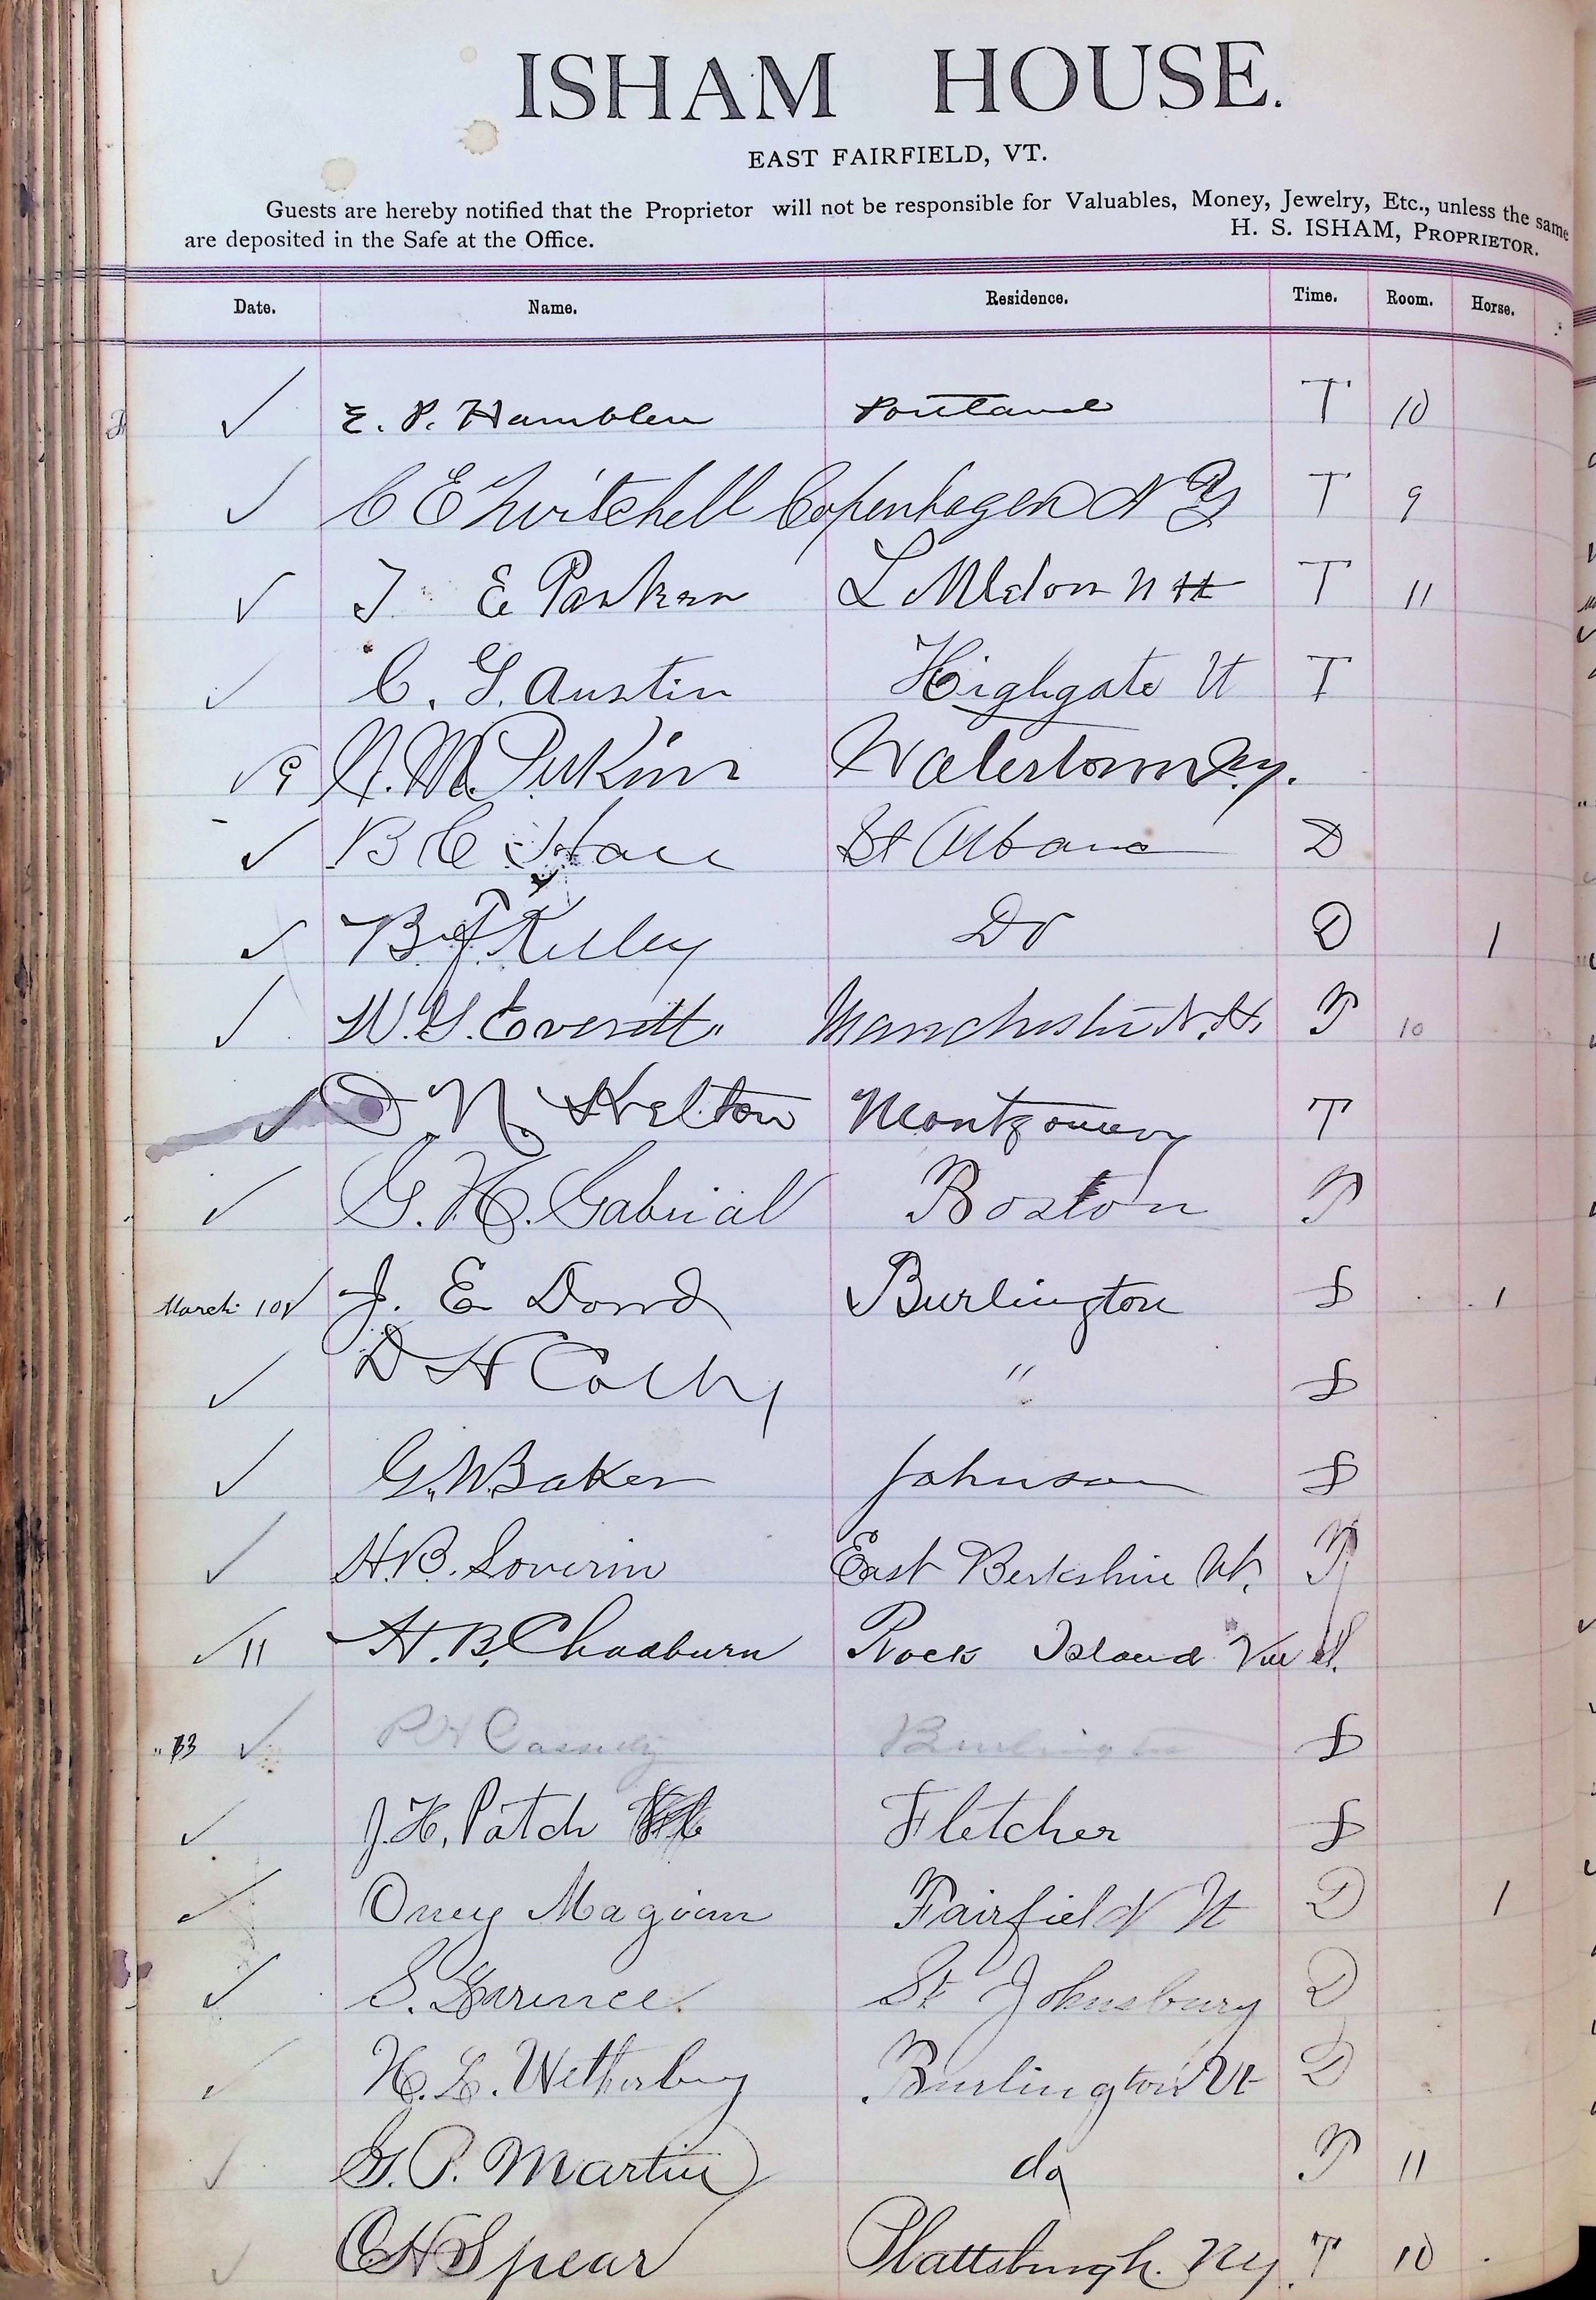 ISHAM HOUSE.
EAST FAIRFIELD, VT.
Guests are hereby notified that the Proprietor will not be responsible for Valuables, Money, Jewelry, Etc., unless the same
are deposited in the Safe at the Office.
H. S. ISHAM, PROPRIETOR.
Date. Name. Residence. Time. Room. Horse.
✓ E. P. Hamblen Portland T 10
✓ C E Twitchell Copenhagen N Y T 9
✓ E Parker N H T 11
✓ C. G. Austin Highgate Vt T
✓ 9 A. M. Perkins Watertown N.y.
✓ B C Hall St Albans D
✓ B. J. Kelley Do D 1
✓ W. G. Everett Manchester N. H. T 10
✓ D. N. Helton Montgomery T
✓ G. H. Gabrial Boston T
March 10 ✓ J. E Dowd Burlington D 1
✓ D H Colby " D
✓ G. W. Baker Johnson D
✓ H. B. Loverin East Berkshire Vt. T
✓ 11 H. B. Chadburn Rock Island
" 13 ✓ P H Cassidy Burlington D
✓ J. H. Patch Fletcher D
✓ Magivern Fairfield Vt D 1
✓ S. St Johnsbury D
✓ H. L. Wetherbey Burlington Vt D
✓ G. P. Martin do T 11
✓ C H Spear Plattsburgh. NY. T 10